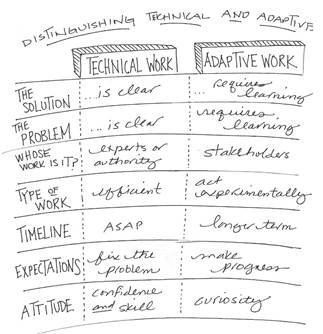 DISTINGUISHING TECHNICAL AND ADAPTIVE
TECHNICAL WORK ADAPTIVE WORK
THE SOLUTION ...is clear ... requires learning
THE PROBLEM ...is clear requires learning
WHOSE WORK IS IT? experts or authority stakeholders
TYPE OF WORK efficient act experimentally
TIMELINE ASAP longer term
EXPECTATIONS fix the problem make progress
ATTITUDE confidence and skill curiosity